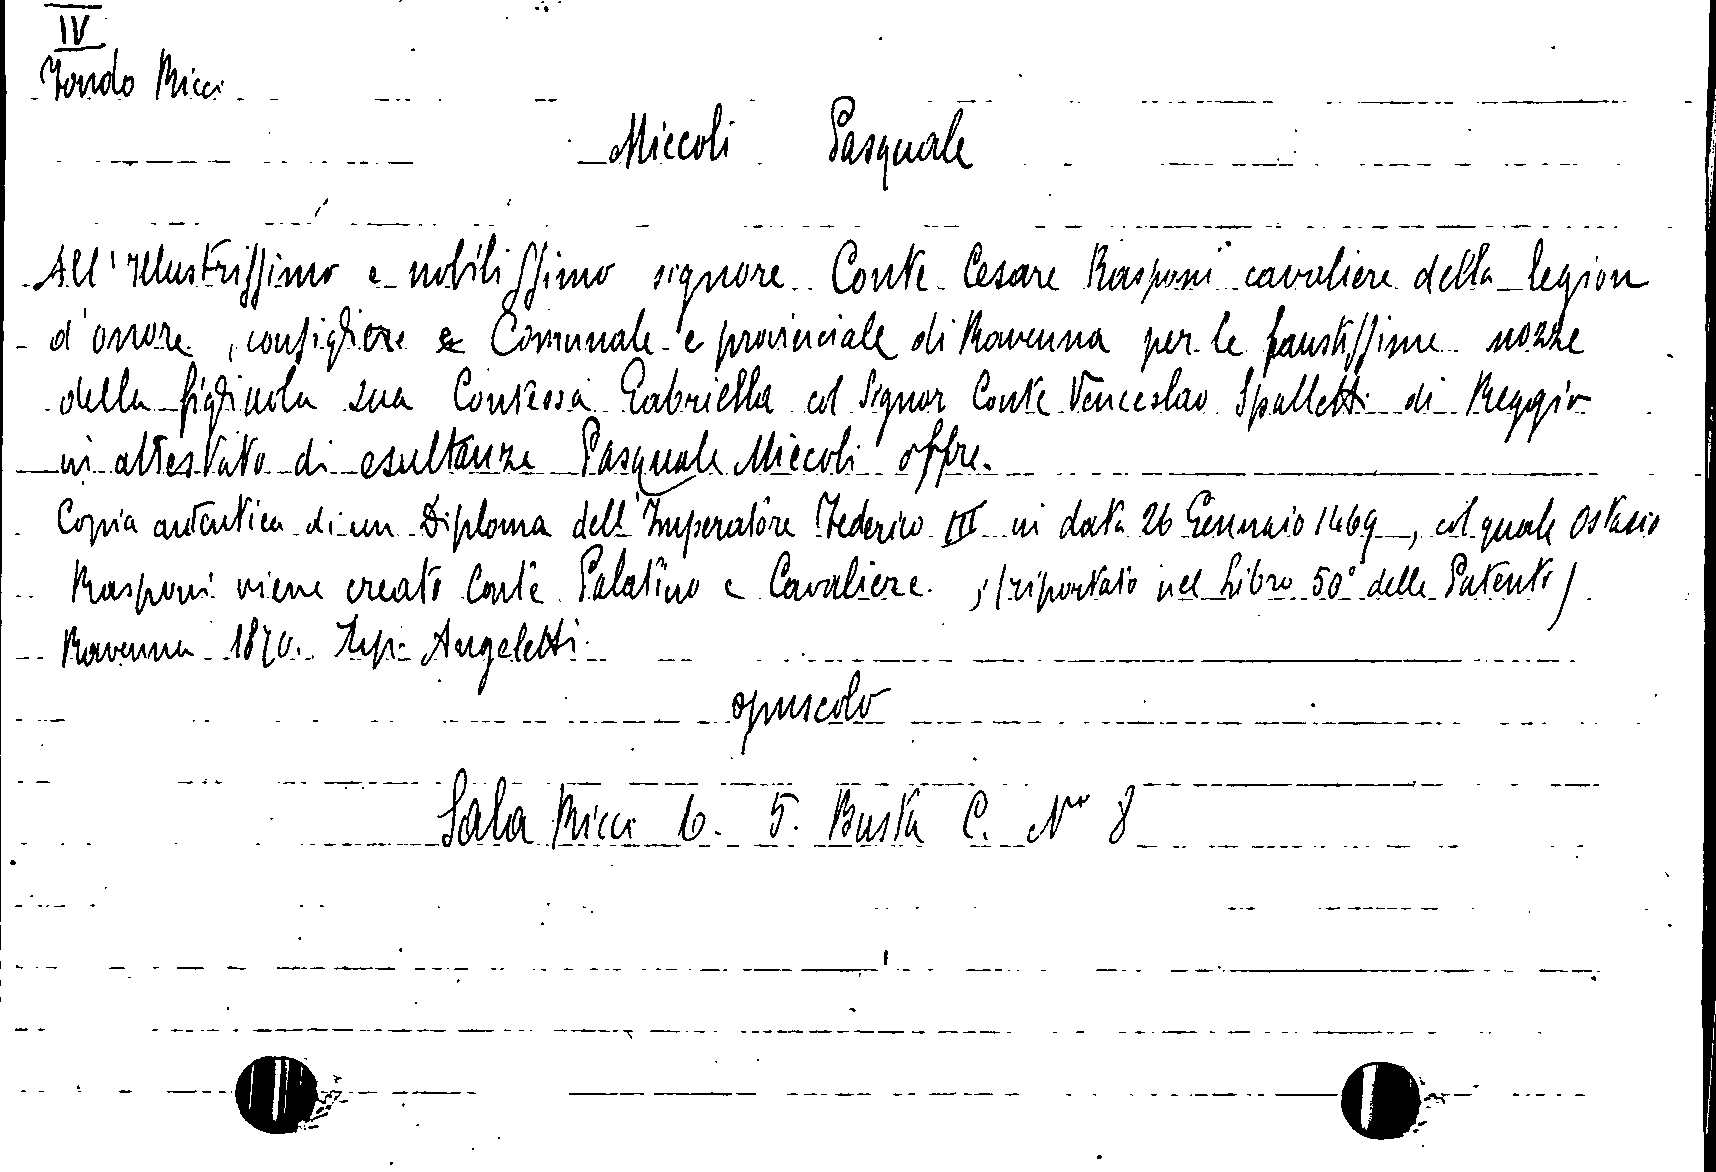 IV
Fondo Ricci
Miccoli Pasquale
All'Illustrissimo e nobilissimo signore Conte Cesare Rasponi cavaliere della legion
d'onore, consigliere Comunale e provinciale di Ravenna per le faustissime nozze
della figliuola sua Contessa Gabriella col Signor Conte Venceslao Spalletti di Reggio
in attestato di esultanza Pasquale Miccoli offre.
Copia autentica di un Diploma dell'Imperatore Federico III in data 26 Gennaio 1469, col quale Ostasio
Rasponi viene creato Conte Palatino e Cavaliere. (riportato nel Libro 50° delle Patenti)
Ravenna 1870. Tip. Angeletti.
opuscolo
Sala Ricci 6. 5. Busta C. No 8